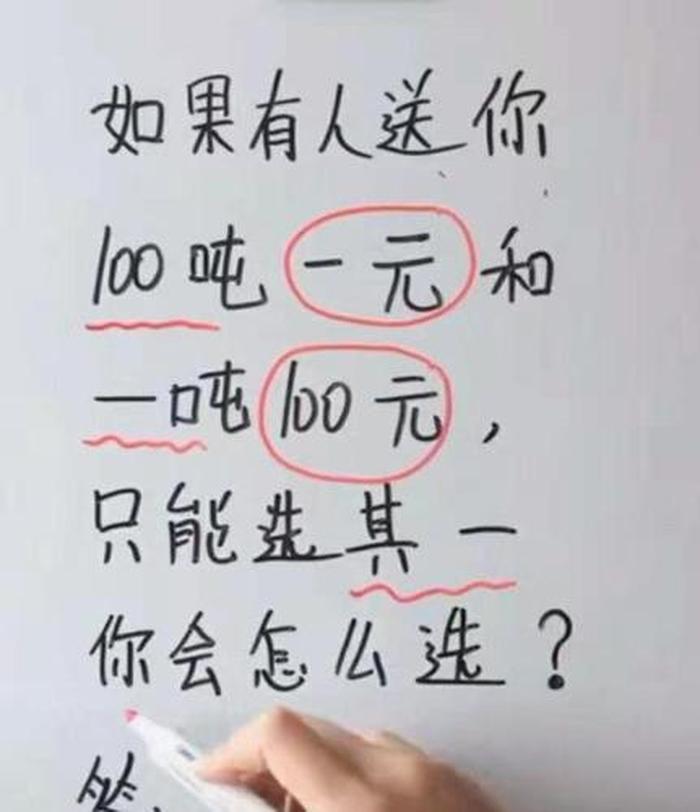 如果有人送你
100吨一元和
一吨100元,
只能选其一
你会怎么选?